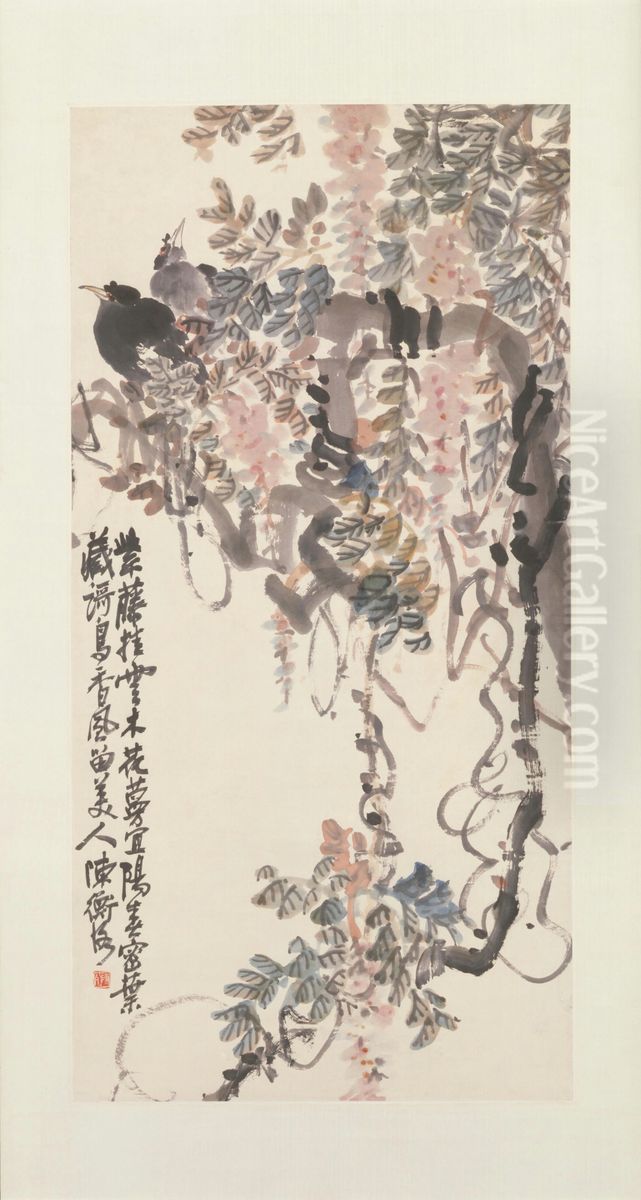 紫藤挂雲木花蔓宜陽春密葉
藏謌鳥香風留美人陳衡恪
NiceArtGallery.com